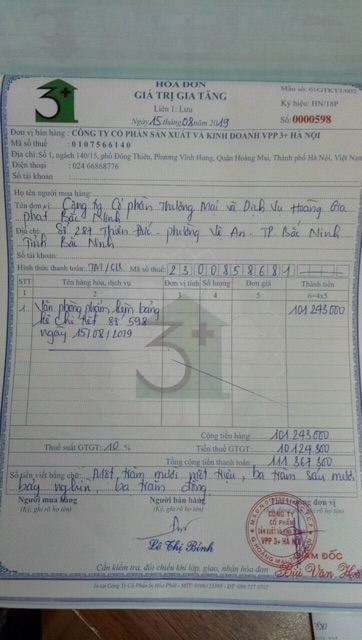 HÓA ĐƠN
GIÁ TRỊ GIA TĂNG
Mẫu số: 01GTKT3/002
Liên 1: Lưu
Ký hiệu: HN/18P
Ngày 15 tháng 08 năm 2019
Số: 0000598
3+
Đơn vị bán hàng : CÔNG TY CỔ PHẦN SẢN XUẤT VÀ KINH DOANH VPP 3+ HÀ NỘI
Mã số thuế : 0107566140
Địa chỉ: Số 1, ngách 140/15, phố Đông Thiên, Phường Vĩnh Hưng, Quận Hoàng Mai, Thành phố Hà Nội, Việt Nam
Điện thoại : 024 66868776
Số tài khoản
Họ tên người mua hàng:
Tên đơn vị: Công ty Cổ phần Thương Mại và Dịch Vụ Hoàng Gia
phát Bắc Ninh
Địa chỉ: Số 287 Thiên Đức - phường Vệ An - TP Bắc Ninh
Tỉnh Bắc Ninh
Số tài khoản:
Hình thức thanh toán: TM/CK Mã số thuế: 2300858681
STT Tên hàng hóa, dịch vụ Đơn vị tính Số lượng Đơn giá Thành tiền
1 2 3 4 5 6=4x5
1 Văn phòng phẩm kèm bảng 101 243 000
kê chi tiết số 598
ngày 15/08/2019
3+
Cộng tiền hàng: 101 243 000
Thuế suất GTGT: 10 % Tiền thuế GTGT: 10 124 300
Tổng cộng tiền thanh toán: 111 367 300
Số tiền viết bằng chữ: Một trăm mười một triệu, ba trăm sáu mươi
bảy nghìn, ba trăm đồng
Người mua hàng Người bán hàng
(Ký, ghi rõ họ tên) (Ký, ghi rõ họ tên)
CÔNG TY
CỔ PHẦN
SẢN XUẤT VÀ KINH DOANH
VPP 3+ HÀ NỘI
GIÁM ĐỐC
Lê Thị Bình
Cần kiểm tra, đối chiếu khi lập, giao, nhận hóa đơn